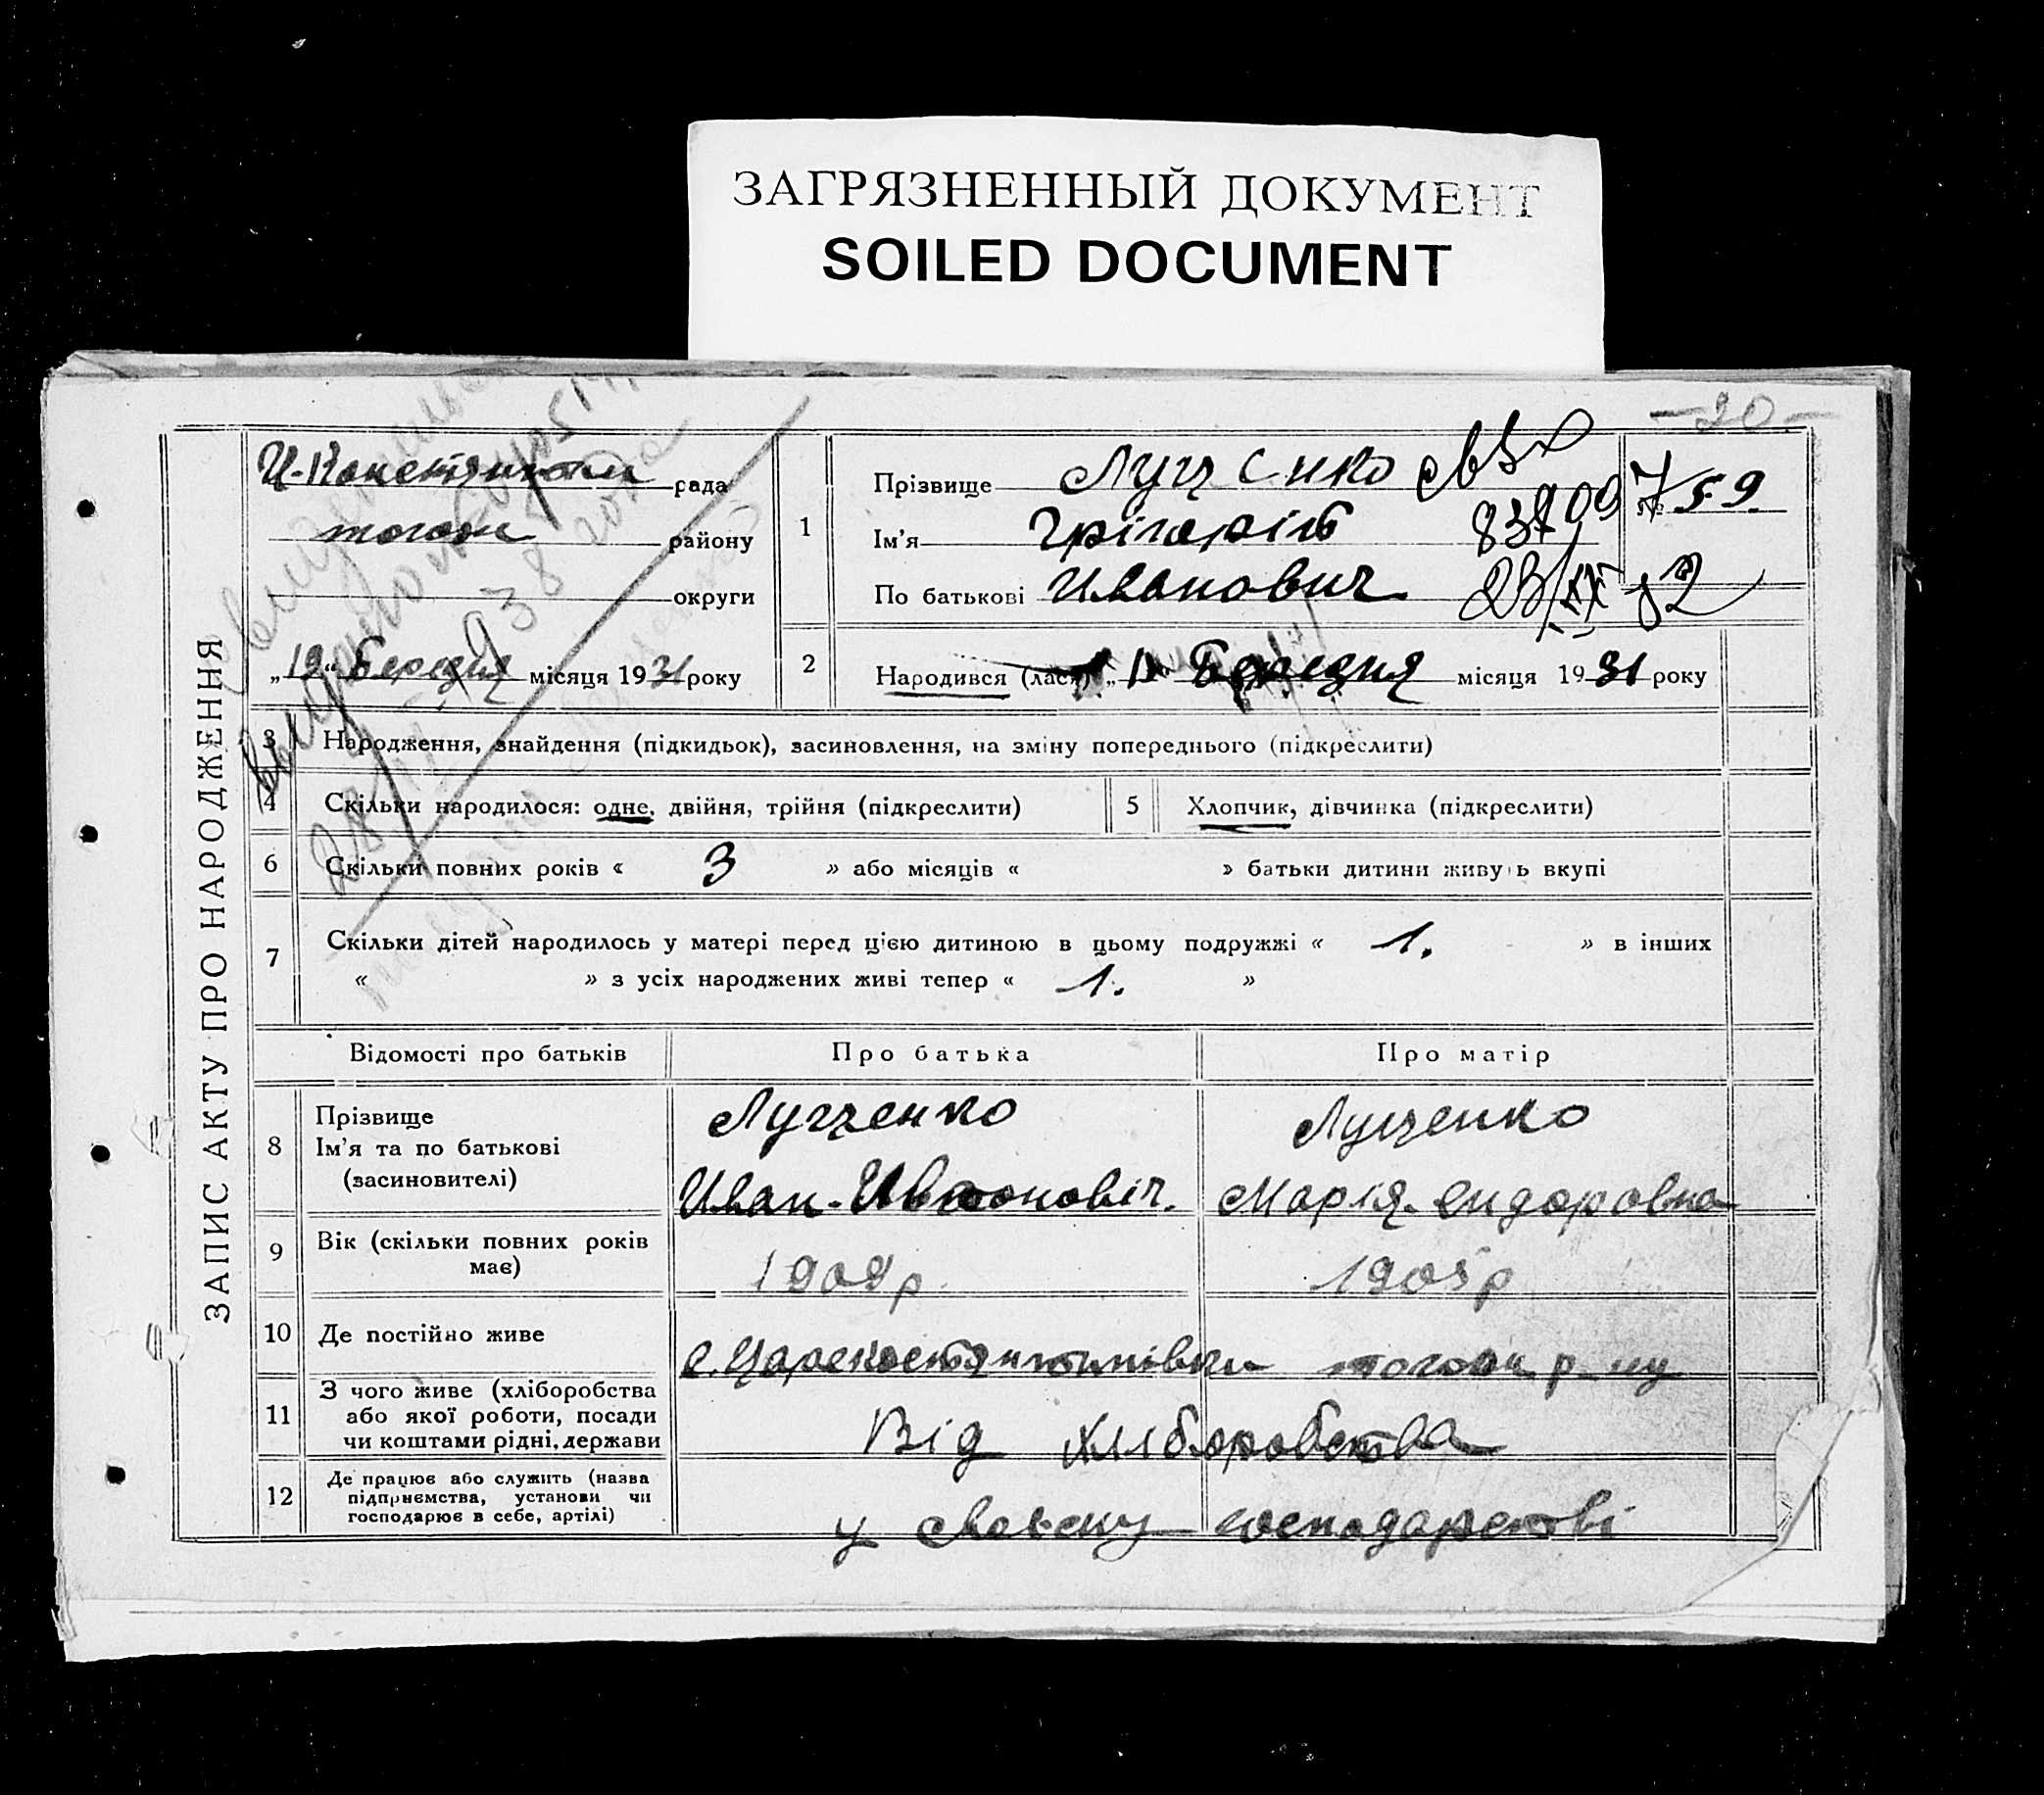 ЗАГРЯЗНЕННЫЙ ДОКУМЕНТ
SOILED DOCUMENT
-20-
ЗАПИС АКТУ ПРО НАРОДЖЕННЯ
рада
району
округи
„19“ Березня місяця 1931 року
1
Прізвище Лутченко
Ім'я Грігорій
По батькові Иванович
83709
23/
82
№ 759.
2 Народився (лась) „ Березня місяця 1931 року
1938 року
3 Народження, знайдення (підкидьок), засиновлення, на зміну попереднього (підкреслити)
4 Скільки народилося: одне, двійня, трійня (підкреслити)
5 Хлопчик, дівчинка (підкреслити)
6 Скільки повних років « 3 » або місяців « » батьки дитини живуть вкупі
7 Скільки дітей народилось у матері перед цією дитиною в цьому подружжі « 1. » в інших
« » з усіх народжених живі тепер « 1. »
Відомості про батьків Про батька Про матір
8 Прізвище
Ім'я та по батькові
(засиновителі)
Лутченко
Иван Ивановіч.
Лутченко
Марія Сидоровна
9 Вік (скільки повних років
має)
1909р.
1905р
10 Де постійно живе
с. Цареконстянтинівки тогож р-ну
11 З чого живе (хліборобства
або якої роботи, посади
чи коштами рідні, держави
Від хліборобства
12 Де працює або служить (назва
підприємства, установи чи
господарює в себе, артілі)
у своєму господарстві